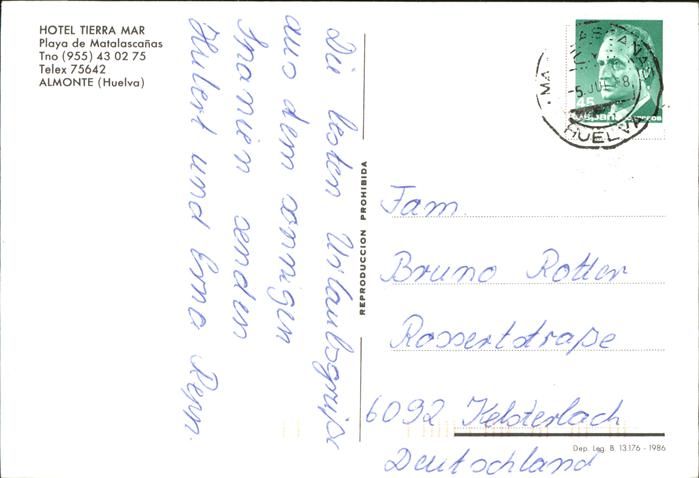 HOTEL TIERRA MAR
Playa de Matalascañas
Tno (955) 43 02 75
Telex 75642
ALMONTE (Huelva)
Die besten Urlaubsgrüße
aus dem sonnigen
Spanien senden
Hubert und Erna Repp.
REPRODUCCION PROHIBIDA
-5 JUL 88
HUELVA
45
España correos
Fam.
Bruno Rotter
Rossertstraße
6092 Kelsterbach
Deutschland
Dep. Leg. B. 13.176 - 1986